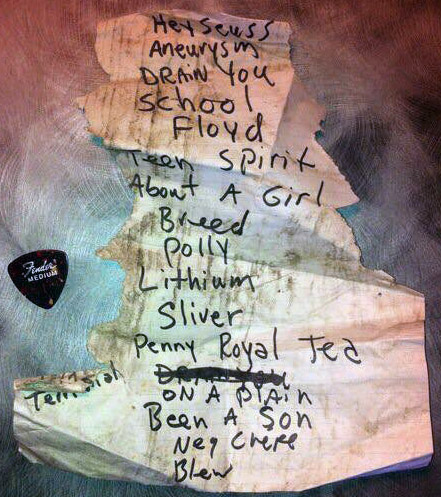 Hey Seuss
Aneurysm
DRAIN YOU
School
Floyd
Teen Spirit
About A Girl
Breed
Polly
Lithium
Sliver
Penny Royal Tea
ON A PLAIN
Been A Son
Neg Creep
Blew
Fender
MEDIUM